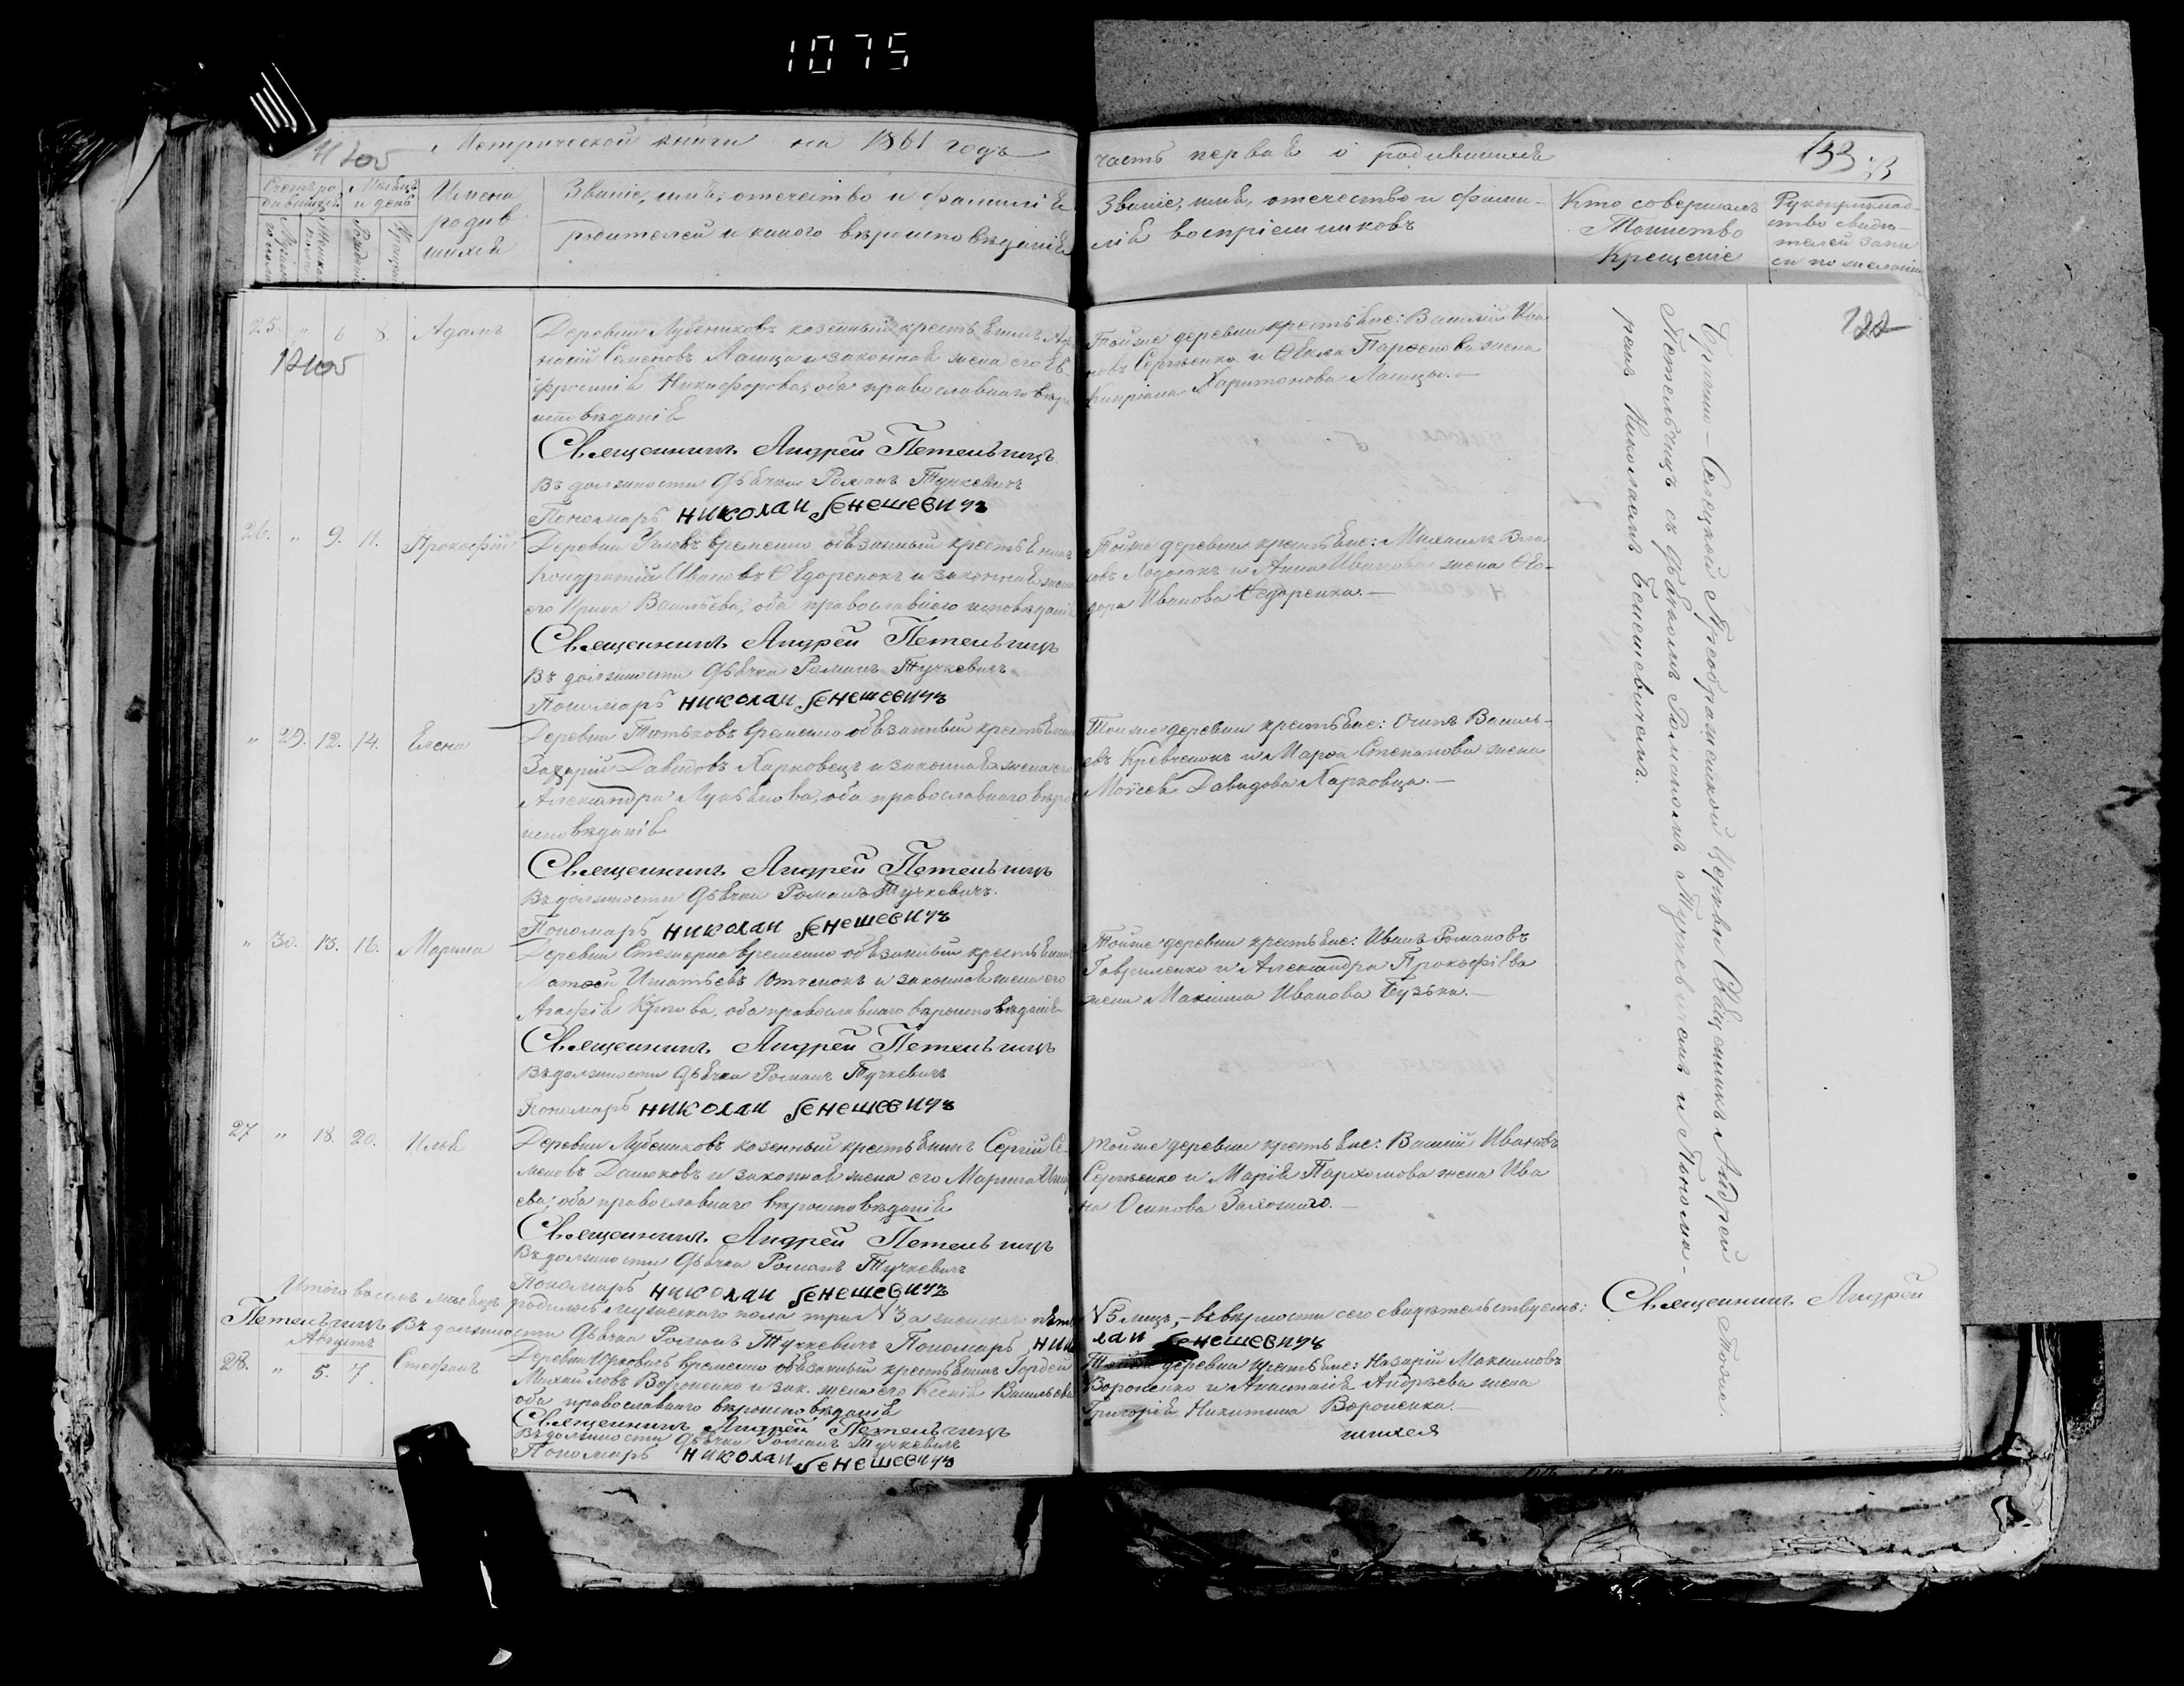 1075
Метрической книги на 1861 годъ
часть первая о родившихся
133
Счетъ ро-
дившихся
Мѣсяцъ
и день
Имена
родив
шихся
Званіе, имя, отечество и фамилія
родителей и какого вѣроисповѣданія
Званіе, имя, отечество и фами-
лія воспріемниковъ
Кто совершалъ
Таинство
Крещенія
Рукоприклад-
ство свидѣ-
телей запи
си по желанію
Мужеска
пола
Женска
пола
Рожденія
Крещенія
25. " 6 8. Адамъ
Деревни Лубениковъ казенный крестьянинъ Аѳ
насій Семеновъ Лапица и законная жена его Ев-
фросинія Никифорова, оба православнаго вѣро
исповѣданія
Священникъ Андрей Петельчицъ
Въ должности Дьячка Романъ Тучкевичъ
Пономарь Николай Бенешевичъ
Тойже деревни крестьяне: Василій Ива
новъ Сергіенко и Ѳекла Парѳенова жена
Кипріана Харитонова Лапицы.—
26. " 9. 11. Прокофій
Деревни Угловъ временно обязанный крестьянинъ
Кондратій Ивановъ Ѳедоренокъ и законная жена
его Ирина Васильева, оба православнаго исповѣданія
Священникъ Андрей Петельчицъ
Въ должности Дьячка Романъ Тучкевичъ
Пономарь Николай Бенешевичъ
Тойже деревни крестьяне: Михаилъ Вла
совъ и Анна Иванова жена Ѳео-
дора Иванова Ѳедоренка.—
" 29. 12. 14. Елена
Деревни Тютьковъ временно обязанный крестьянинъ
Захарій Давидовъ Харковецъ и законная жена его
Александра Лукьянова, оба православнаго вѣро
исповѣданія
Священникъ Андрей Петельчицъ
Въ должности Дьячка Романъ Тучкевичъ.
Пономарь Николай Бенешевичъ
Тойже деревни крестьяне: Осипъ Василь-
евъ Кревченокъ и Марѳа Степанова жена
Моисея Давидова Харковца.—
" 30. 13. 16. Марина
Деревни временно обязанный крестьянинъ
Матѳей Игнатьевъ Ютченокъ и законная жена его
Агафія оба православнаго вѣроисповѣданія
Священникъ Андрей Петельчицъ
Въ должности Дьячка Романъ Тучкевичъ
Пономарь Николай Бенешевичъ
Тойже деревни крестьяне: Иванъ Романовъ
Гавриленко и Александра Прокофіева
жена Максима Иванова Бузька.—
27 " 18. 20. Илья
Деревни Лубениковъ казенный крестьянинъ Сергій Се-
меновъ Данюковъ и законная жена его Марина
ева; оба православнаго вѣроисповѣданія
Священникъ Андрей Петельчицъ
Въ должности Дьячка Романъ Тучкевичъ
Пономарь Николай Бенешевичъ
Тойже деревни крестьяне: Василій Ивановъ
Сергіенко и Марія Пархомова жена Ива
на Осипова
Итого въ семъ мѣсяцѣ родилось мужескаго пола три №3 а женскаго
№5 лицъ,— въ вѣрности сего свидѣтельствуемъ: Священникъ Андрей
Петельчицъ Въ должности Дьячка Романъ Тучкевичъ Пономарь Нико
лай Бенешевичъ
Августъ
28. " 5. 7. Стефанъ
Деревни Юрковичъ временно обязанный крестьянинъ Гордей
Михайловъ Вороненко и зак. жена его Ксенія Васильева
оба православнаго вѣроисповѣданія
Священникъ Андрей Петельчицъ
Въ должности Дьячка Романъ Тучкевичъ
Пономарь Николай Бенешевичъ
Тойже деревни крестьяне: Назарій Максимовъ
Вороненко и Анастасія Андреева жена
Григорія Никитина Вороненка.—
шихся
Преображенской Церкви Священникъ Андрей
Петельчицъ съ дьячкомъ Романомъ Тучкевичемъ и Понома-
ремъ Николаемъ Бенешевичемъ.